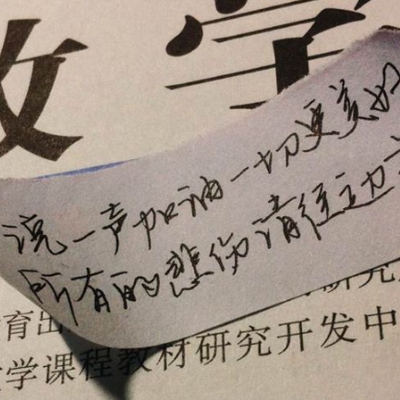 学
说一声加油一切更美好
所有的悲伤请
育出 研究
学课程教材研究开发中